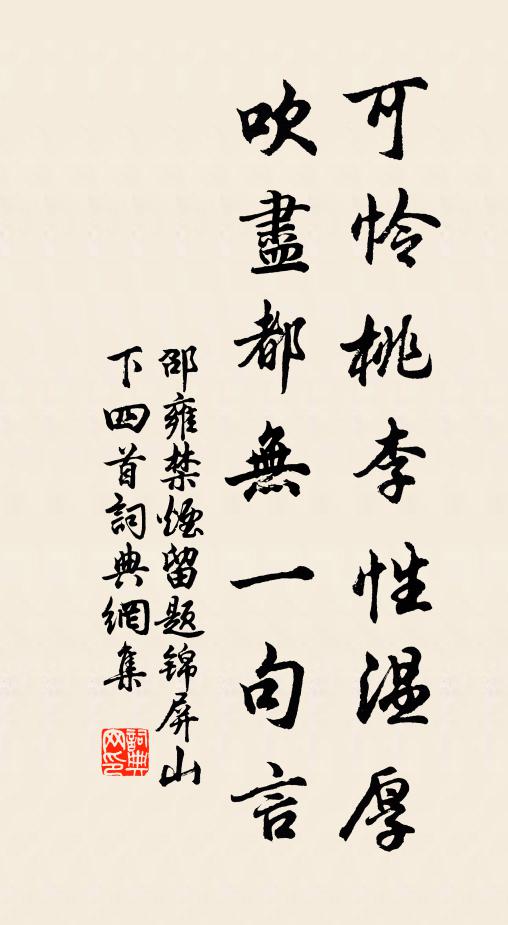 可怜桃李性温厚
吹盡都無一句言
邵雍禁煙留题锦屏山
下四首詞典網集
詞典
网印